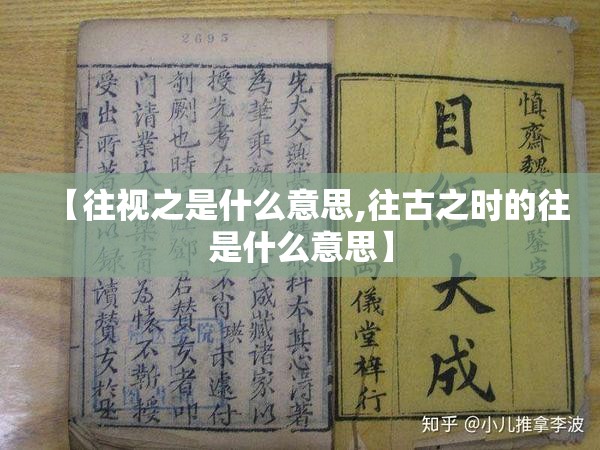 2695
慎齋魏鑒定
目經大成
儀堂梓行
先大父燕科本其心浔著
為華乘顏大成藏諸家以
授先考在不肖瑛未遑付
剞劂也時鄧君贊夫者叩
門請業大樂育為懷不靳授
受出所著以録讀贊夫於是
【往视之是什么意思,往古之时的往
是什么意思】
知乎 @小儿推拿李波